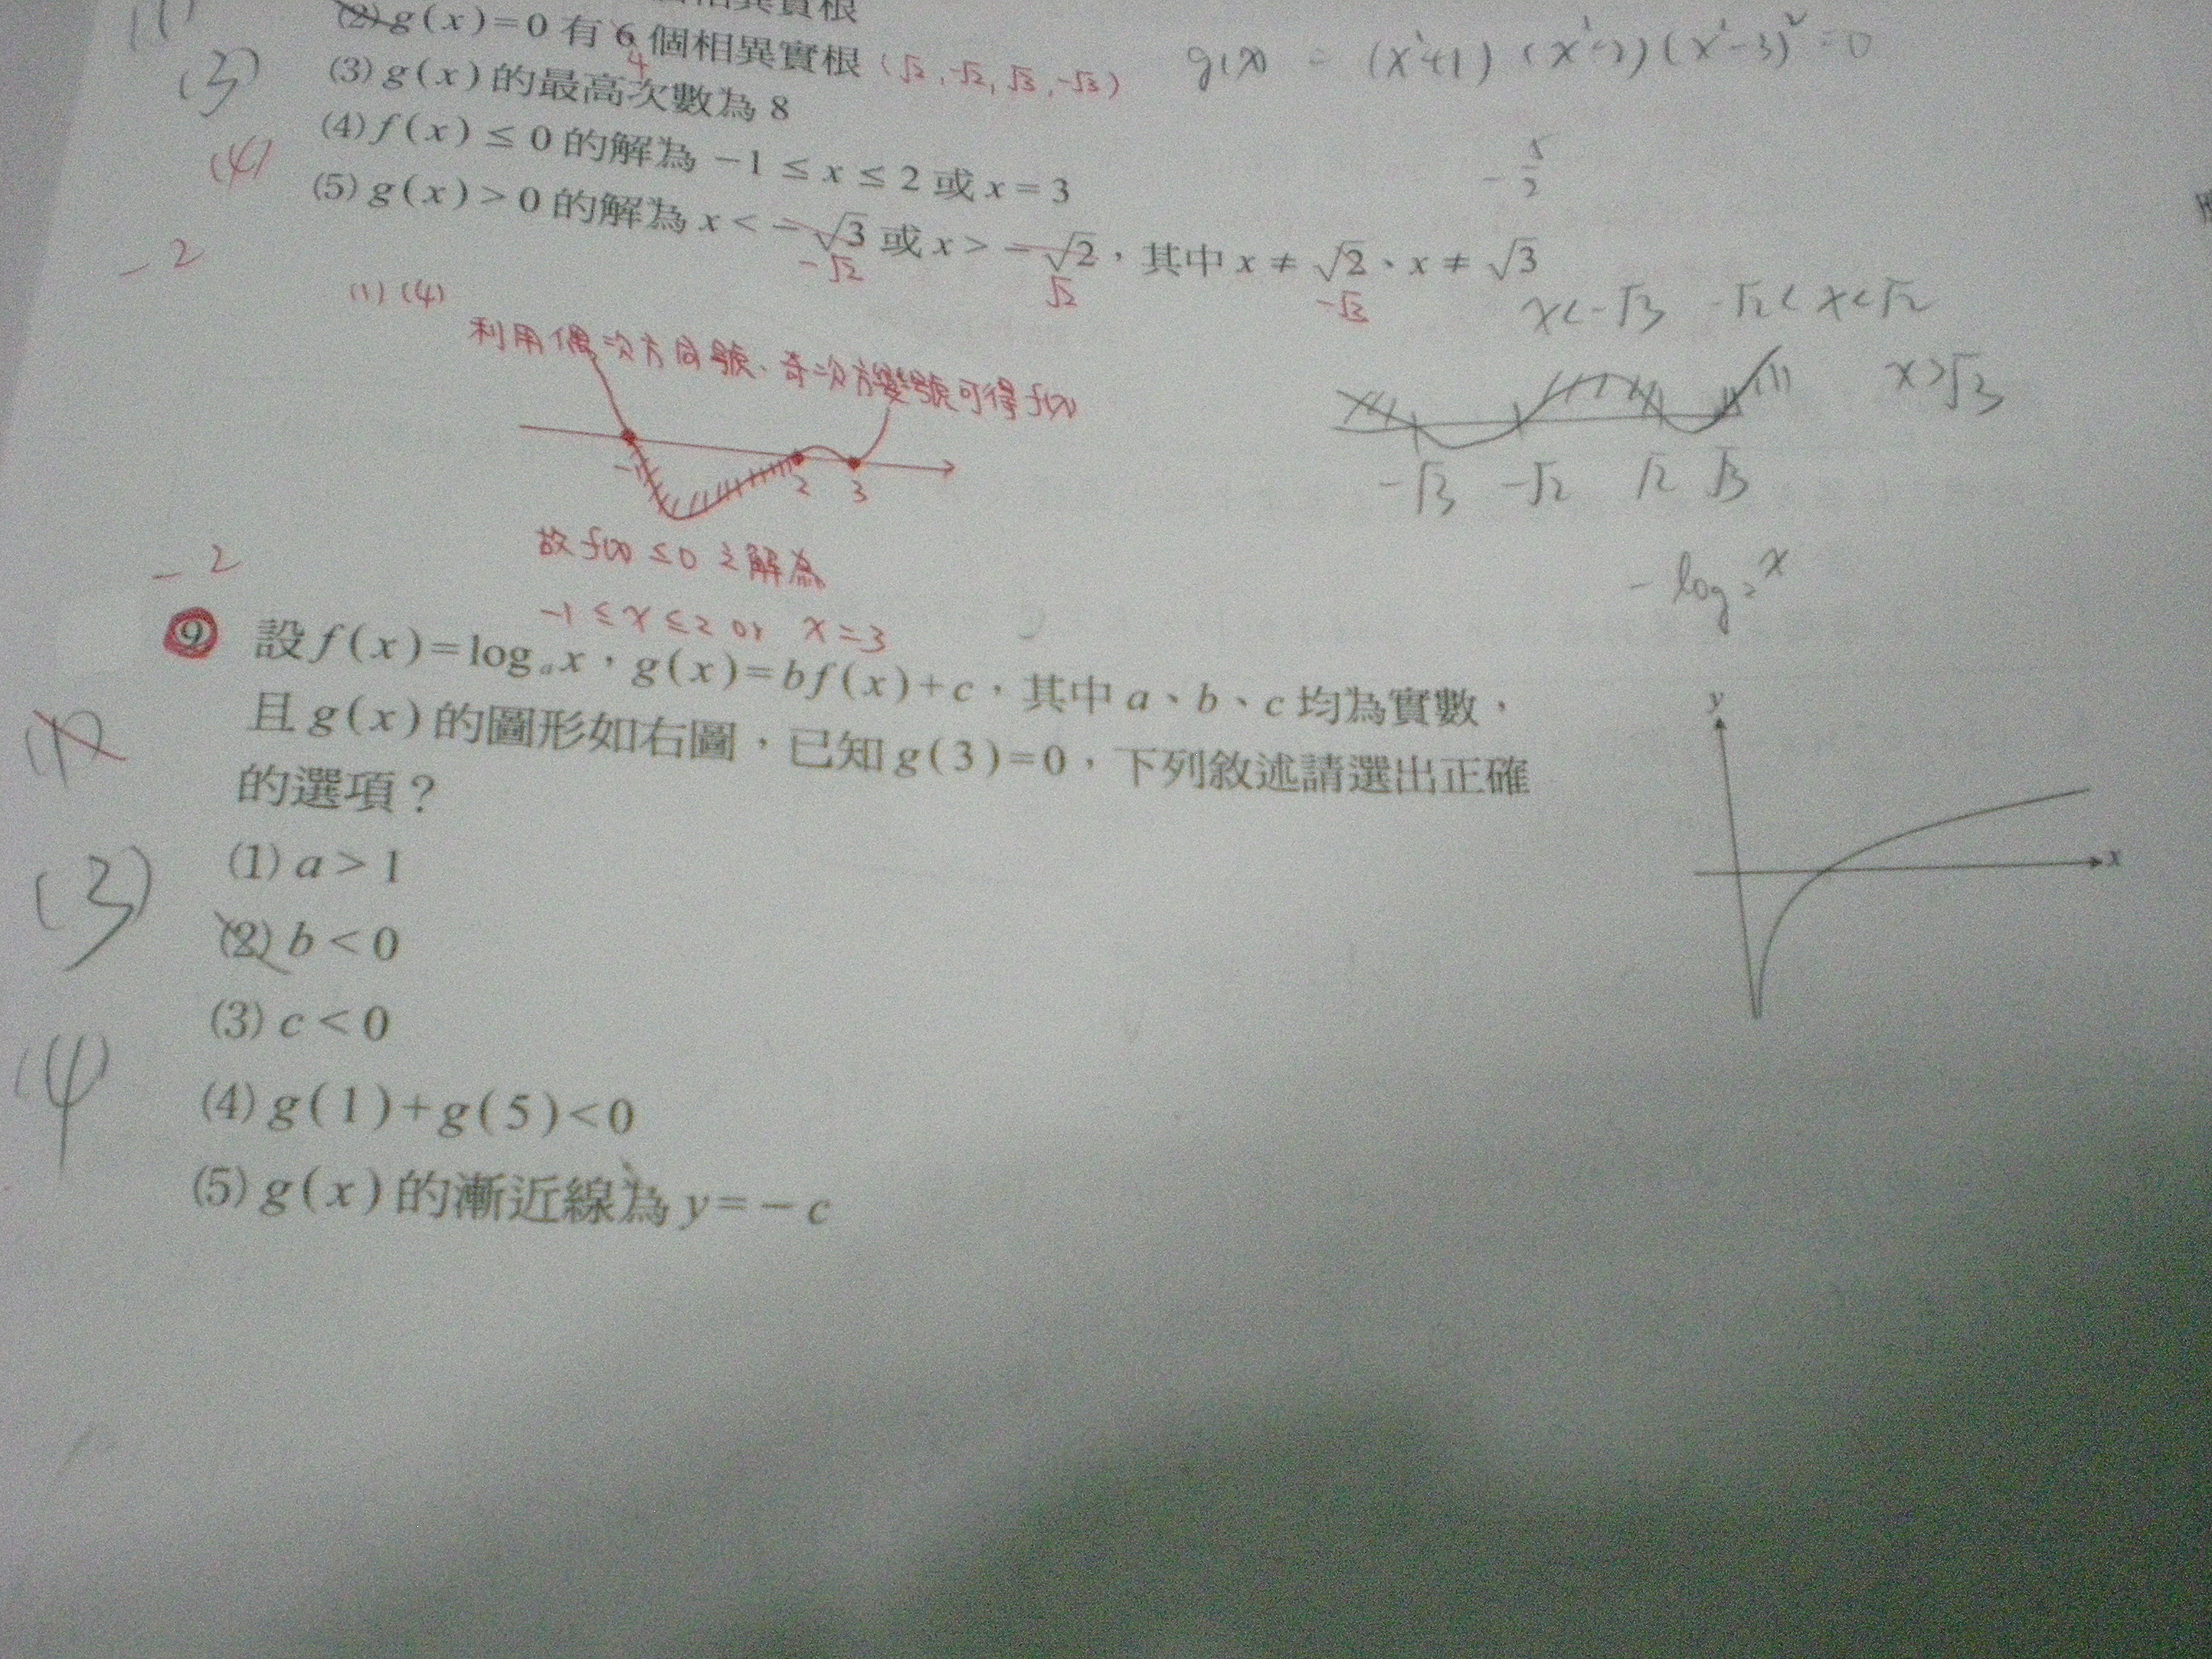 相異實根
(2) g(x)=0 有 6 個相異實根 (√2, -√2, √3, -√3)
4
g(x) = (x²+1) (x²-2) (x²-3)² = 0
(3)
(3) g(x) 的最高次數為 8
(4) f(x) ≤ 0 的解為 -1 ≤ x ≤ 2 或 x = 3
(4)
-5/2
(5) g(x) > 0 的解為 x < -√3 或 x > -√2，其中 x ≠ √2、x ≠ √3
-√2 √2 -√3
-2
(1) (4)
x<-√3 -√2<x<√2
x>√3
利用偶次方同號、奇次方變號可得f(x)
-1 2 3
-√3 -√2 √2 √3
故 f(x) ≤ 0 之解為
-1 ≤ x ≤ 2 or x = 3
-log₂x
-2
9 設 f(x)=logₐx，g(x)=bf(x)+c，其中 a、b、c 均為實數，
且 g(x) 的圖形如右圖，已知 g(3)=0，下列敘述請選出正確
的選項？
(1)
(1) a > 1
(3)
(2) b < 0
(3) c < 0
(4)
(4) g(1)+g(5)<0
(5) g(x) 的漸近線為 y=-c
y
x